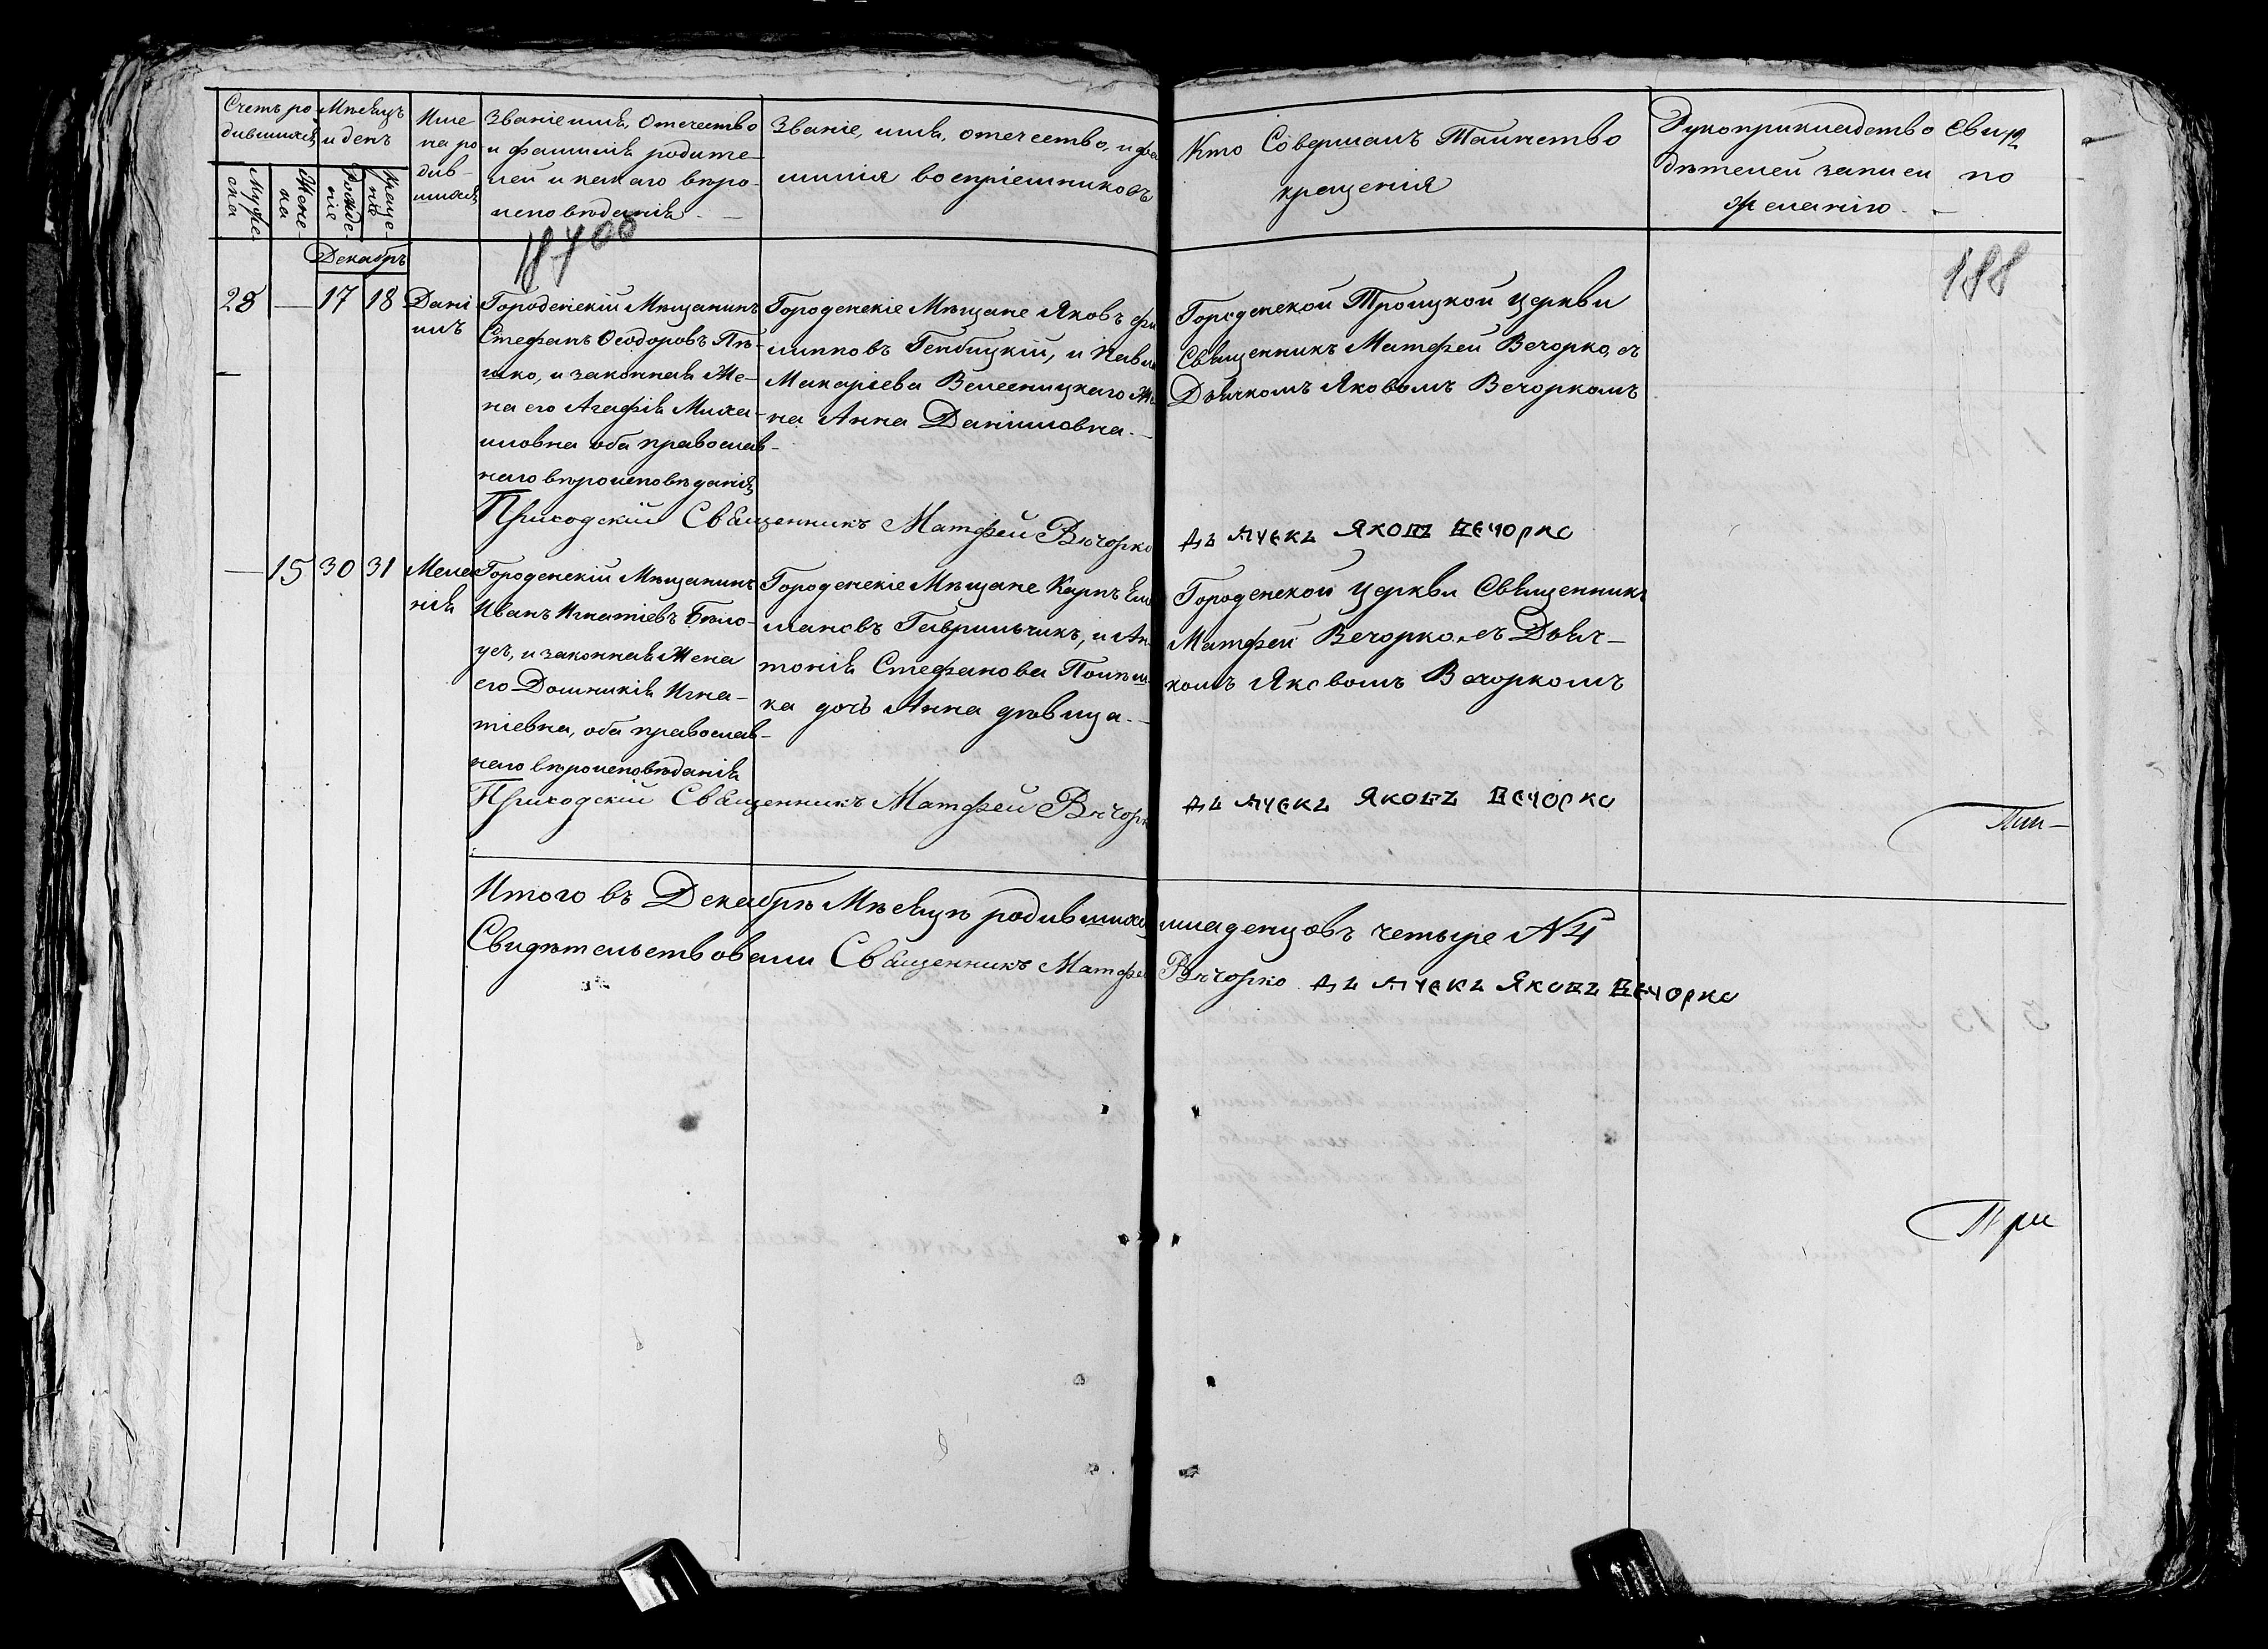 Счетъ ро
дившихся
Мѣсяцъ
и день
Име
на ро
див-
шихся
Званіе имя, Отечество
и фамилія родите-
лей и какаго вѣро-
исповѣданія. —
Званіе, имя, отечество, и фа
милія воспріемниковъ
Кто Совершалъ Таинство
крещенія
Рукоприкладство сви
дѣтелей записи по
желанію. —
Муже-
ска
Жене-
ка
Рожде-
ніе
Креще-
ніе
188
Декабрь
28 — 17 18
Дані
илъ
Городенскій Мѣщанинъ
Стефанъ Ѳеодоровъ Пѣ-
шко, и законная Же-
на его Агафія Миха-
иловна оба православ-
наго вѣроисповѣданія
Городенскіе Мѣщане Яковъ Фи
липповъ Гембицкій, и Павла
Макаріева Велесницкаго Же
на Анна Даніиловна. —
Городенской Троицкой церкви
Священникъ Матфей Вечорко, съ
Дьячкомъ Яковомъ Вечоркомъ
Приходскій Священникъ Матфей Вечорко
дьячекъ Яковъ Вечорко
— 15 30 31
Мела
нія
Городенскій Мѣщанинъ
Иванъ Игнатіевъ Бѣло-
усъ, и законная Жена
его Домникія Игна-
тіевна, оба православ-
наго вѣроисповѣданія
Городенскіе Мѣщане Карпъ Еми
ліановъ Гаврильчикъ, и Ан-
тонія Стефанова Полѣш-
ка дочь Анна дѣвица. —
Городенской церкви Священникъ
Матфей Вечорко съ Дьяч-
комъ Яковомъ Вечоркомъ
Приходскій Священникъ Матфей Вечорко
дьячекъ Яковъ Вечорко
Итого въ Декабрѣ Мѣсяцѣ родившихся младенцовъ четыре № 4
Свидѣтельствовали Священникъ Матфей Вечорко дьячекъ Яковъ Вечорко
При